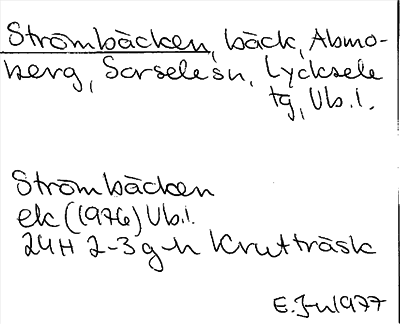 Strömbäcken, bäck, Abmo-
berg, Sorsele sn, Lycksele
tg, Vb.l.
Strömbäcken
ek (1976) Vb.l.
24H 2-3 g-h Krutträsk
E.Ju 1977